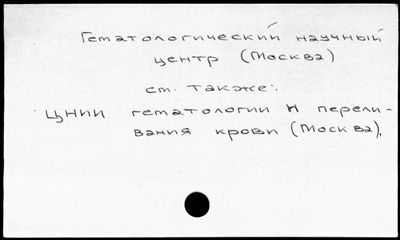 Гематологический научный
центр (Москва)
см. также:
ЦНИИ гематологии и перели-
вания крови (Москва).